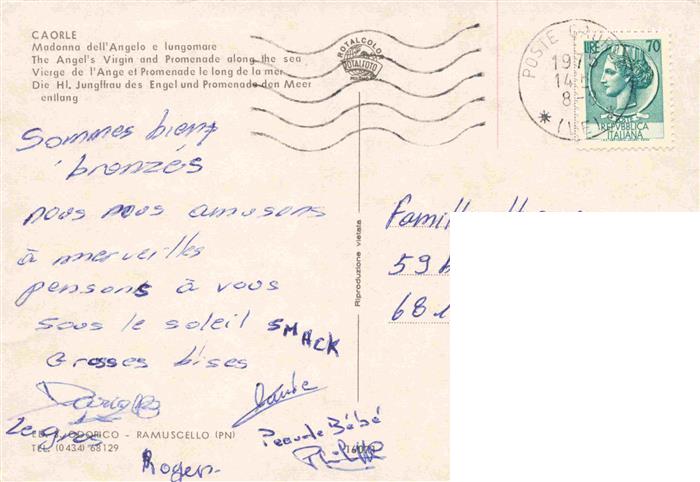 CAORLE
Madonna dell'Angelo e lungomare
The Angel's Virgin and Promenade along the sea
Vierge de l'Ange et Promenade le long de la mer
Die Hl. Jungffrau des Engel und Promenade den Meer
entlang
ROTALCOLOR
ROTALFOTO
POSTE
LIRE 70
REPVBBLICA
ITALIANA
(VE)
Sommes bien
bronzés
nous nous amusons
à merveilles
pensons à vous
sous le soleil SMACK
Grosses bises
Legros
Peau de Bébé
Roger
Riproduzione vietata
59
68
RAMUSCELLO (PN)
TEL. (0434) 68129